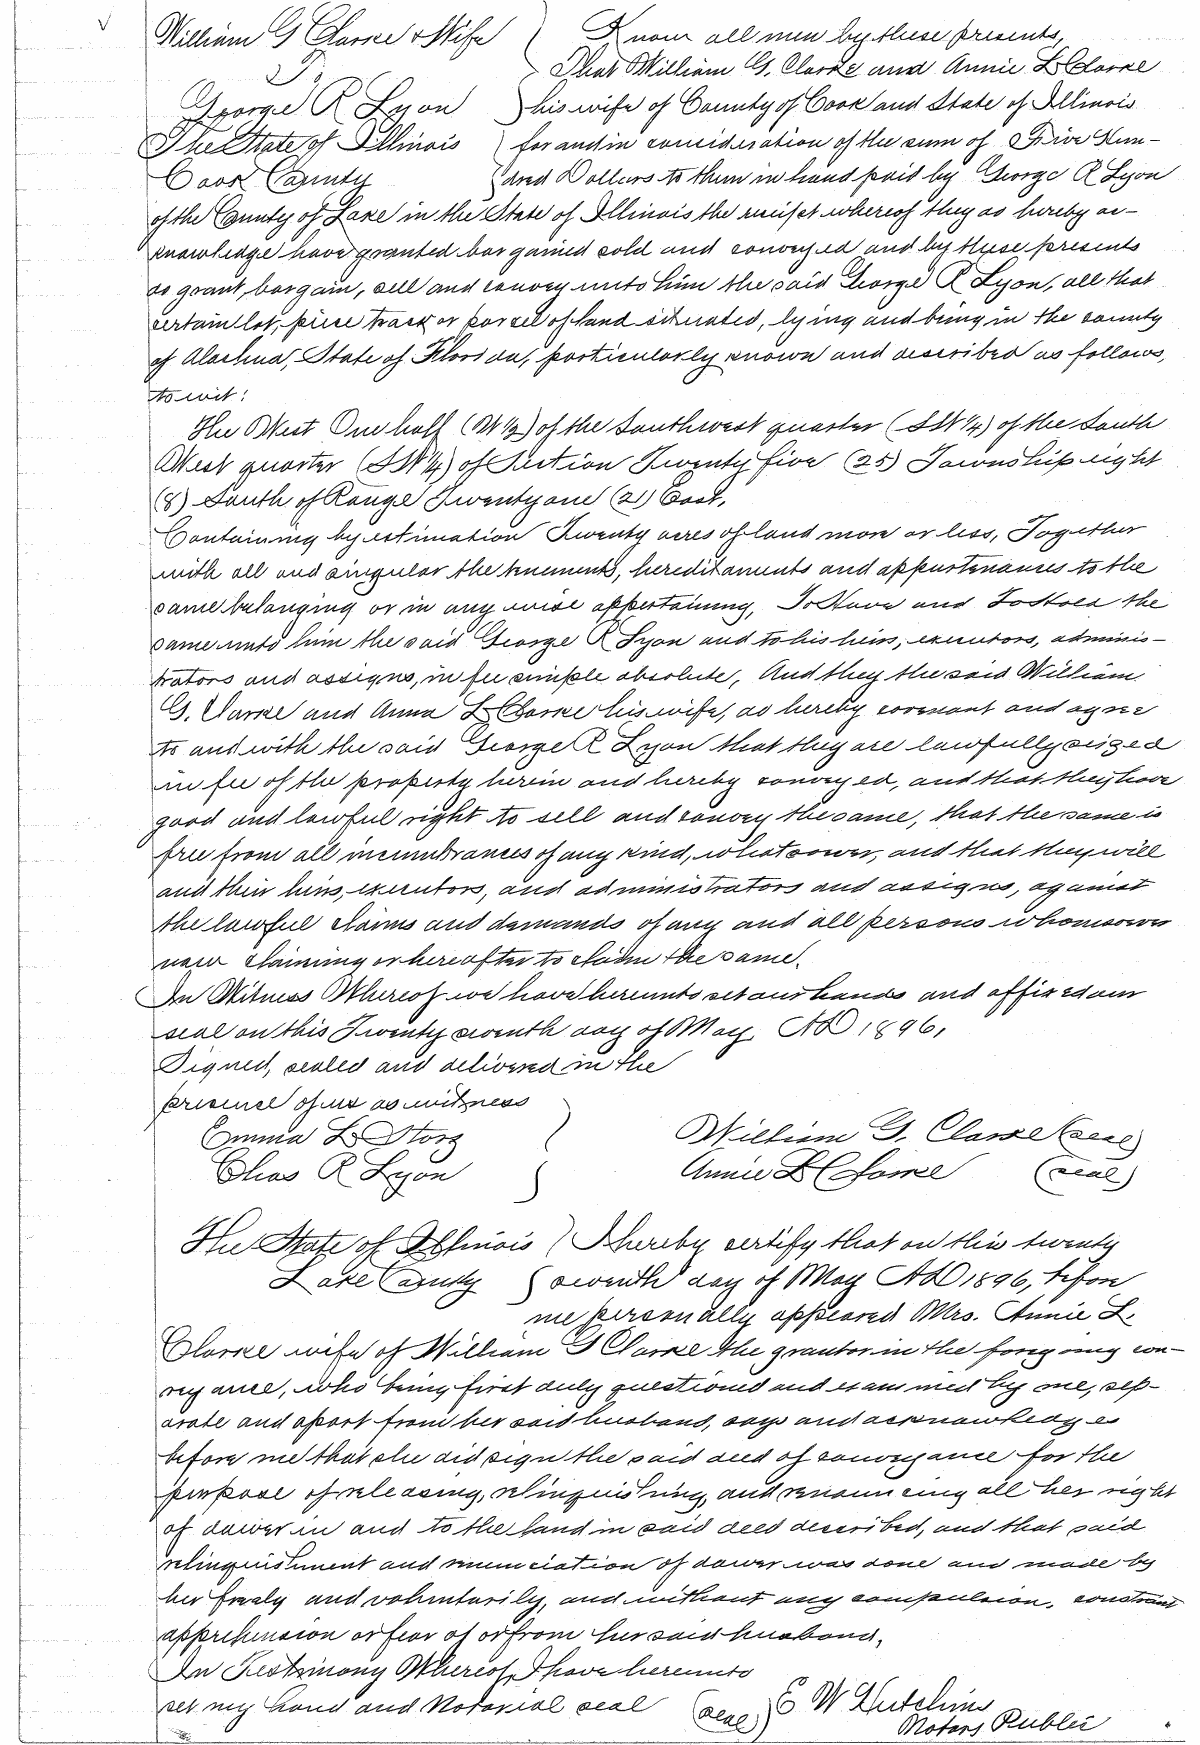 William G Clarke & Wife ) Know all men by these presents,
To ) That William G. Clarke and Annie L Clarke
George R Lyon ) his wife of County of Cook and State of Illinois
The State of Illinois ) for and in consideration of the sum of Five Hun-
Cook County ) dred Dollars to them in hand paid by George R Lyon
of the County of Lake in the State of Illinois the receipt whereof they do hereby ac-
knowledge have granted bargained sold and conveyed and by these presents
do grant, bargain, sell and convey unto him the said George R Lyon, all that
certain lot, piece track or parcel of land situated, lying and being in the county
of Alachua, State of Florida, particularly known and described as follows,
to wit:
The West One half (W½) of the Southwest quarter (SW¼) of the South
West quarter (SW¼) of Section Twenty five (25) Township eight
(8) South of Range Twenty one (21) East,
Containing by estimation Twenty acres of land more or less, Together
with all and singular the tenements, hereditaments and appurtenances to the
same belonging or in any wise appertaining, To Have and To Hold the
same unto him the said George R Lyon and to his heirs, executors, adminis-
trators and assigns, in fee simple absolute, And they the said William
G. Clarke and Anna L Clarke his wife, do hereby covenant and agree
to and with the said George R Lyon that they are lawfully seized
in fee of the property herein and hereby conveyed, and that they have
good and lawful right to sell and convey the same, that the same is
free from all incumbrances of any kind, whatsoever, and that they will
and their heirs, executors, and administrators and assigns, against
the lawful claims and demands of any and all persons whomsoever
now claiming or hereafter to claim the same.
In Witness Whereof we have hereunto set our hands and affixed our
seal on this Twenty seventh day of May, AD 1896,
Signed, sealed and delivered in the
presence of us as witness
Emma L. Storz ) William G. Clarke (seal)
Chas R Lyon ) Annie L Clarke (seal)
The State of Illinois ) I hereby certify that on this twenty
Lake County ) seventh day of May AD 1896, before
me personally appeared Mrs. Annie L.
Clarke wife of William G Clarke the grantor in the foregoing con-
veyance, who being first duly questioned and examined by me, sep-
arate and apart from her said husband, says and acknowledges
before me that she did sign the said deed of conveyance for the
purpose of releasing, relinquishing, and renouncing all her right
of dower in and to the land in said deed described, and that said
relinquishment and renunciation of dower was done and made by
her freely and voluntarily, and without any compulsion, constraint
apprehension or fear of or from her said husband,
In Testimony Whereof, I have hereunto
set my hand and Notarial seal (seal) E W Hutchins
Notary Public